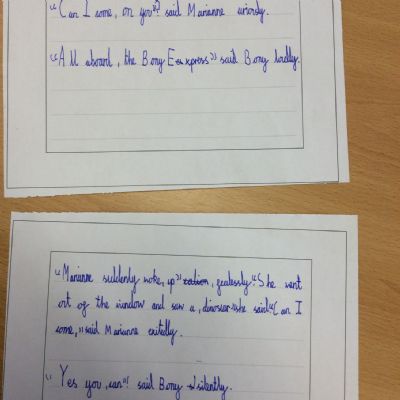 "Can I come, on you"? said Marianne
"All aboard, the Bony Express" said Bony loudly.
"Marianne suddenly woke, up" "She went
out of the window and saw a, dinosaur "she said "Can I
come," said Marianne excitedly.
"Yes you, can"! said Bony silently.